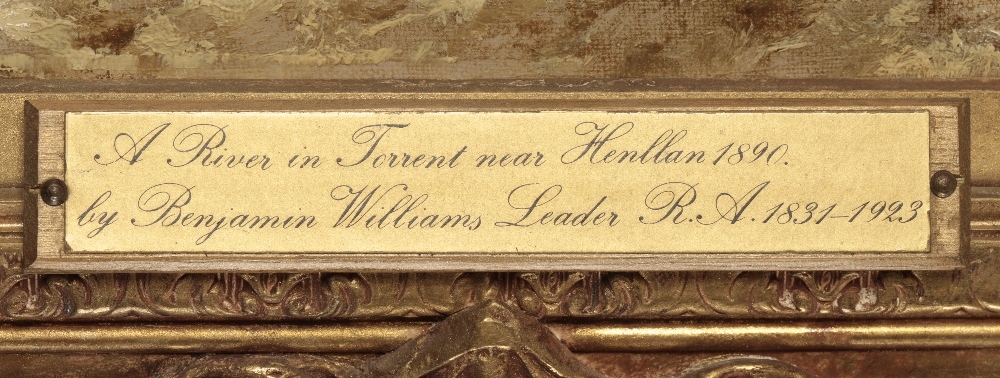 A River in Torrent near Henllan 1890.
by Benjamin Williams Leader R.A. 1831-1923